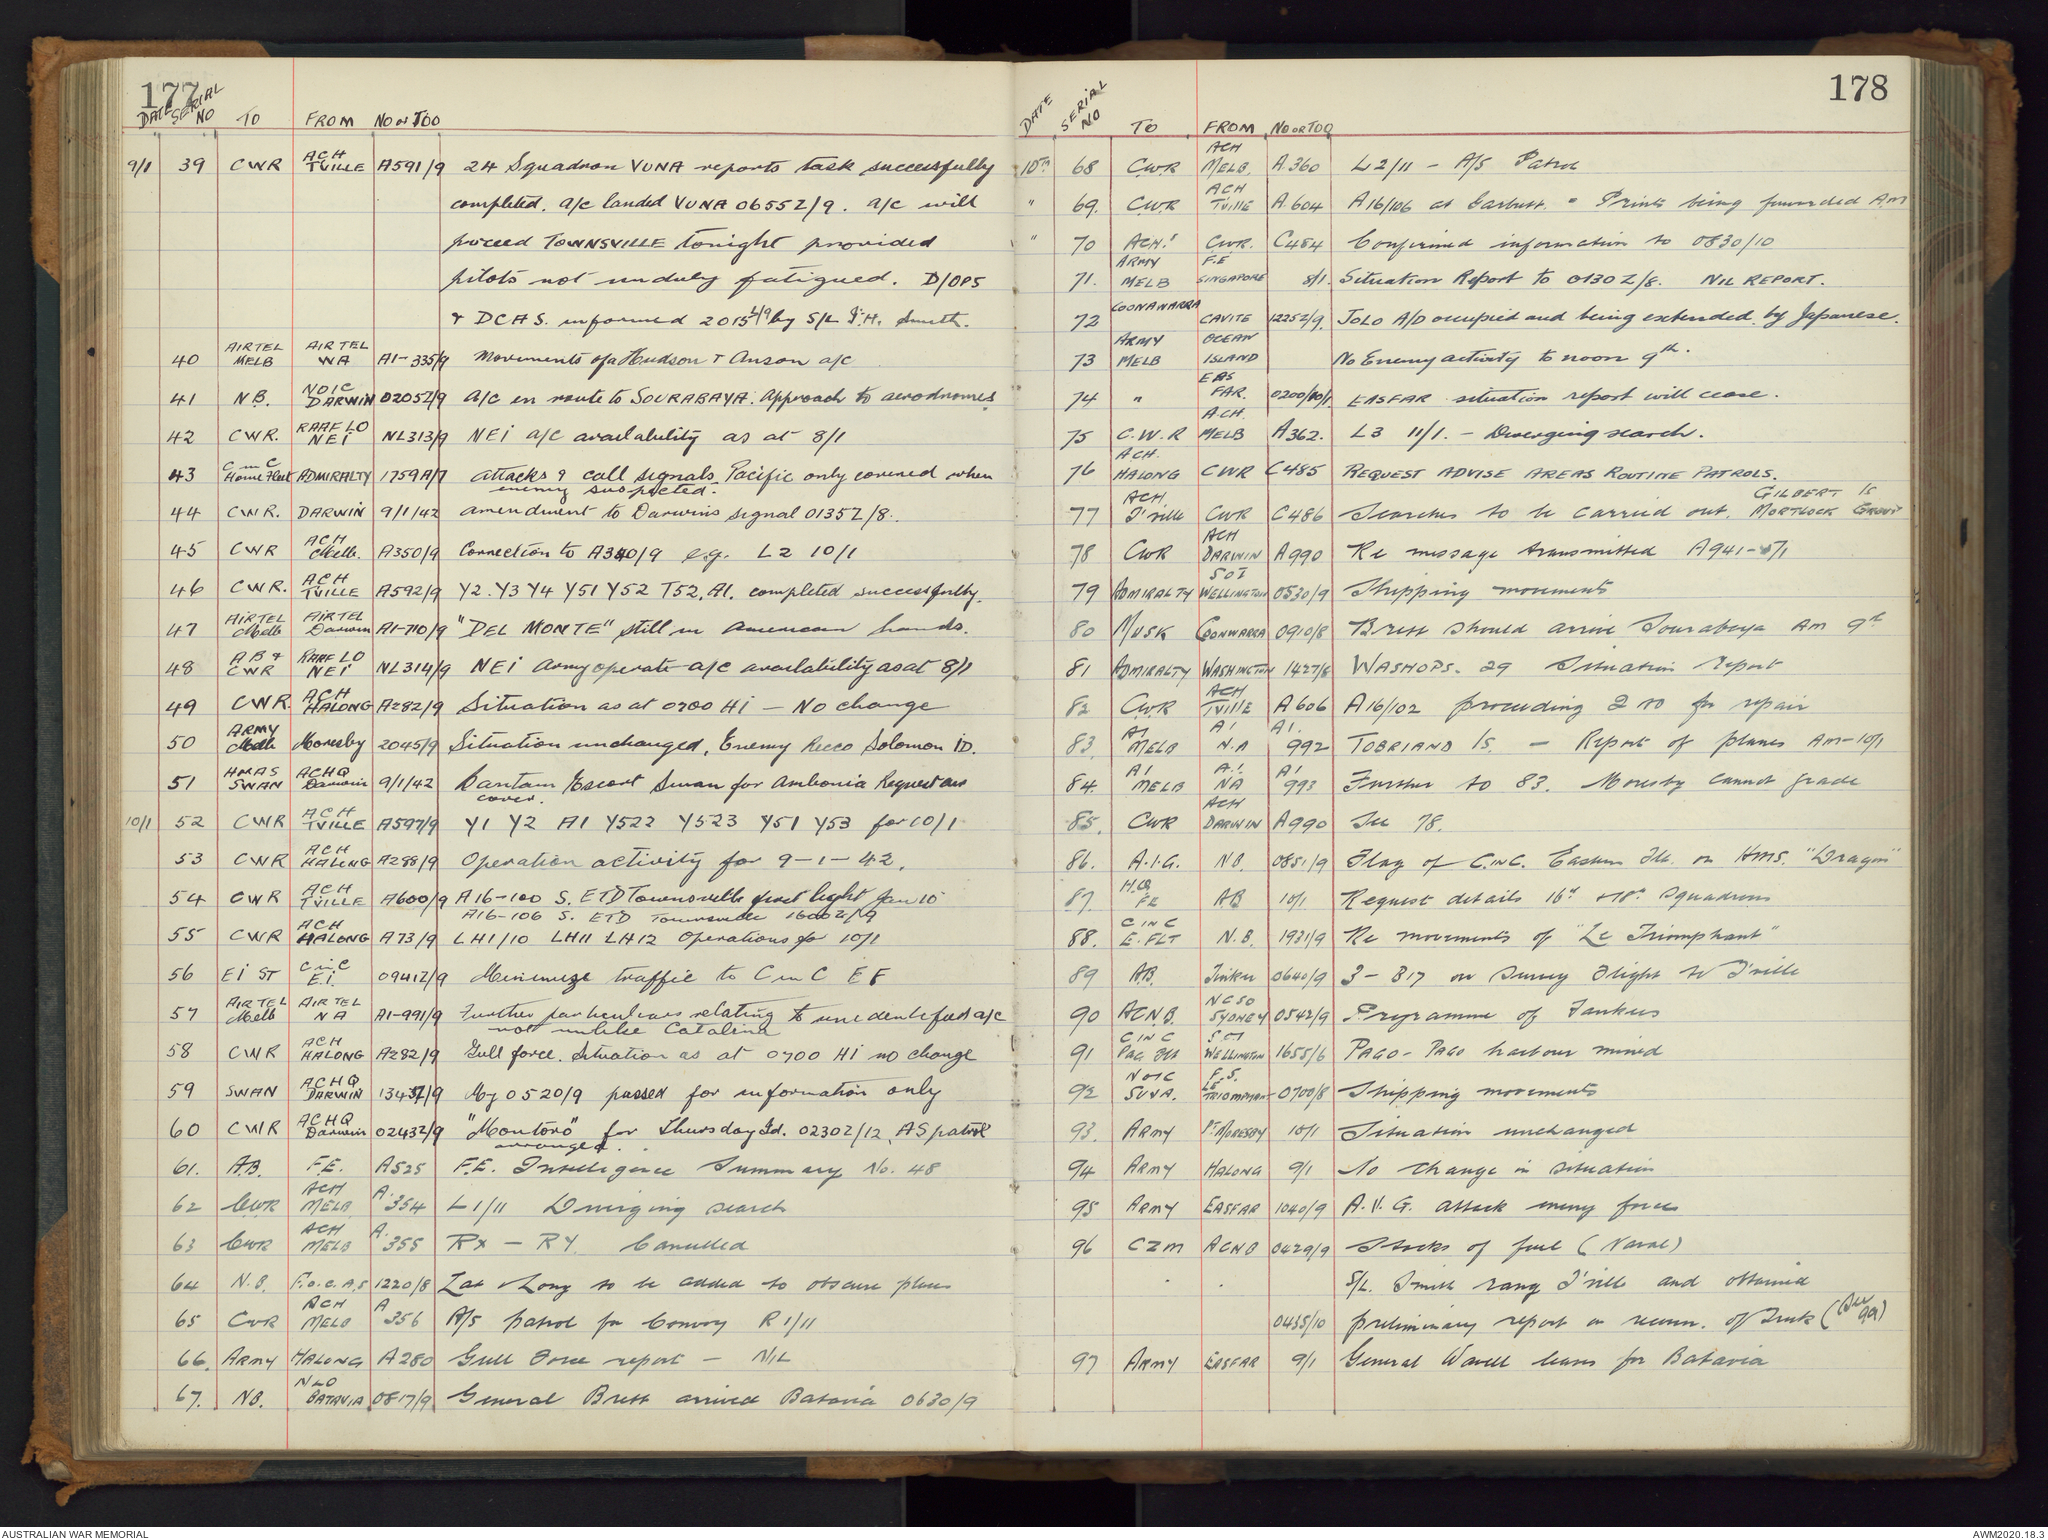 177
DATE SERIAL NO TO FROM NO or TOO
9/1 39 CWR ACH TVILLE A591/9 24 Squadron VUNA reports task successfully
completed. a/c landed VUNA 0655Z/9. a/c will
proceed TOWNSVILLE tonight provided
pilots not unduly fatigued. D/OPS
& DCAS. informed 2015 L/9 by S/L Smith.
40 AIRTEL MELB AIRTEL WA A1-335/9 Movements of a Hudson & Anson a/c
41 N.B. NOIC DARWIN 0205Z/9 A/c en route to SOURABAYA. Approach to aerodromes
42 CWR. RAAF LO NEI NL313/9 NEI a/c availability as at 8/1
43 C in C Home Fleet ADMIRALTY 1759A/7 Attacks & call signals Pacific only covered when
enemy suspected.
44 CWR. DARWIN 9/1/42 Amendment to Darwins signal 0135Z/8.
45 CWR ACH Melb. A350/9 Correction to A340/9 e.g. L2 10/1
46 CWR. ACH TVILLE A592/9 Y2. Y3 Y4 Y51 Y52 T52, A1. completed successfully.
47 AIRTEL Melb AIRTEL Darwin A1-710/9 "DEL MONTE" still in American hands.
48 AB & CWR RAAF LO NEI NL314/9 NEI Army operate a/c availability as at 8/1
49 CWR. ACH HALONG A282/9 Situation as at 0700 HI — No change
50 ARMY Melb Moresby 2045/9 Situation unchanged. Enemy Recco Solomon ID.
51 HMAS SWAN ACHQ Darwin 9/1/42 Bantam Escort Swan for Ambonia Request air
cover.
10/1 52 CWR ACH TVILLE A597/9 Y1 Y2 A1 Y522 Y523 Y51 Y53 for 10/1
53 CWR ACH HALONG A288/9 Operation activity for 9-1-42.
54 CWR ACH TVILLE A600/9 A16-100 S. ETD Townsville first light Jan 10
A16-106 S. ETD Townsville 1600Z/9
55 CWR ACH HALONG A73/9 LH1/10 LH11 LH12 Operations for 10/1
56 EI ST C in C E.I. 0941Z/9 Minimize traffic to C in C EF
57 AIRTEL Melb AIRTEL NA A1-991/9 Further particulars relating to unidentified a/c
not unlike Catalina
58 CWR ACH HALONG A282/9 Gull force. Situation as at 0700 HI no change
59 SWAN ACHQ DARWIN 1343Z/9 My 0520/9 passed for information only
60 CWR ACHQ Darwin 0243Z/9 "Montoro" for Thursday Id. 0230Z/12 AS patrol
arranged.
61. AB. F.E. A525 F.E. Intelligence Summary No. 48
62 CWR ACH MELB A. 354 L1/11 Diverging search
63 CWR ACH MELB A. 355 RX — RY. Cancelled
64 N.B. F.O.C.A.S 1220/8 Lat & Long to be added to obscure places
65 CWR ACH MELB A 356 A/S patrol for Convoy R1/11
66. ARMY HALONG A280 Gull Force report — NIL
67. NB. NLO BATAVIA 0817/9 General Brett arrived Batavia 0630/9
178
DATE SERIAL NO TO FROM NO OR TOO
10TH 68 CWR ACH MELB. A.360 L2/11 — A/S Patrol
" 69. CWR ACH TVILLE A.604 A16/106 at Garbutt. Prints being forwarded A.M
" 70 ACH.S CWR. C484 Confirmed information to 0830/10
71. ARMY MELB F.E SINGAPORE 8/1. Situation Report to 0130Z/8. NIL REPORT.
72 COONAWARRA CAVITE 1225Z/9. JOLO A/D occupied and being extended by Japanese.
73 ARMY MELB OCEAN ISLAND No Enemy activity to noon 9th.
74 " EAS FAR. 0200/10/1. EASFAR situation report will cease.
75 C.W.R ACH. MELB A362. L3 11/1. — Diverging search.
76 ACH. HALONG CWR C485 REQUEST ADVISE AREAS ROUTINE PATROLS.
77 ACH T'ville CWR C486 Searches to be carried out. GILBERT IS MORTLOCK GROUP
78 CWR ACH DARWIN A990 Re message transmitted A941-5/1
79 ADMIRALTY SOI WELLINGTON 0530/9 Shipping movements
80 MUSK COONWARRA 0910/8 Brett should arrive Sourabaya AM 9th
81 ADMIRALTY WASHINGTON 1427/8 WASHOPS. 29 Situation report
82 CWR ACH TVILLE A606 A16/102 proceeding for repair
83 A1 MELB A1 N.A A1. 992 TOBRIAND IS. — Report of planes AM-10/1
84. A1 MELB A.1. NA A1 993 Further to 83. Moresby cannot grade
85. CWR ACH DARWIN A990 See 78.
86. A.I.G. NB. 0851/9 Flag of C.INC. Eastern Flt. on HMS. "Dragon"
87. H.Q. FE AB 10/1 Request details 16th & 18th Squadrons
88. C IN C E. FLT N.B. 1931/9 Re movements of "Le Triomphant"
89 AB. 0640/9 3-B17 on survey flight to T'ville
90 ACNB. NCSO SYDNEY 0542/9 Programme of Tankers
91 C IN C Pac Flt SOI WELLINGTON 1655/6 PAGO-PAGO harbour mined
92 NOIC SUVA. F.S. LE TRIOMPHANT 0700/8 Shipping movements
93. ARMY PT MORESBY 10/1 Situation unchanged
94 ARMY HALONG 9/1 No change in situation
95 ARMY EASFAR 1040/9 A.V.G. attack enemy forces
96 CZM ACNB 0429/9 Stocks of fuel (Naval)
S/L. Smith rang T'ville and obtained
0435/10 preliminary report on reccon. of Truk (See 99)
97 ARMY EASFAR 9/1 General Wavell leaves for Batavia
AUSTRALIAN WAR MEMORIAL
AWM2020.18.3